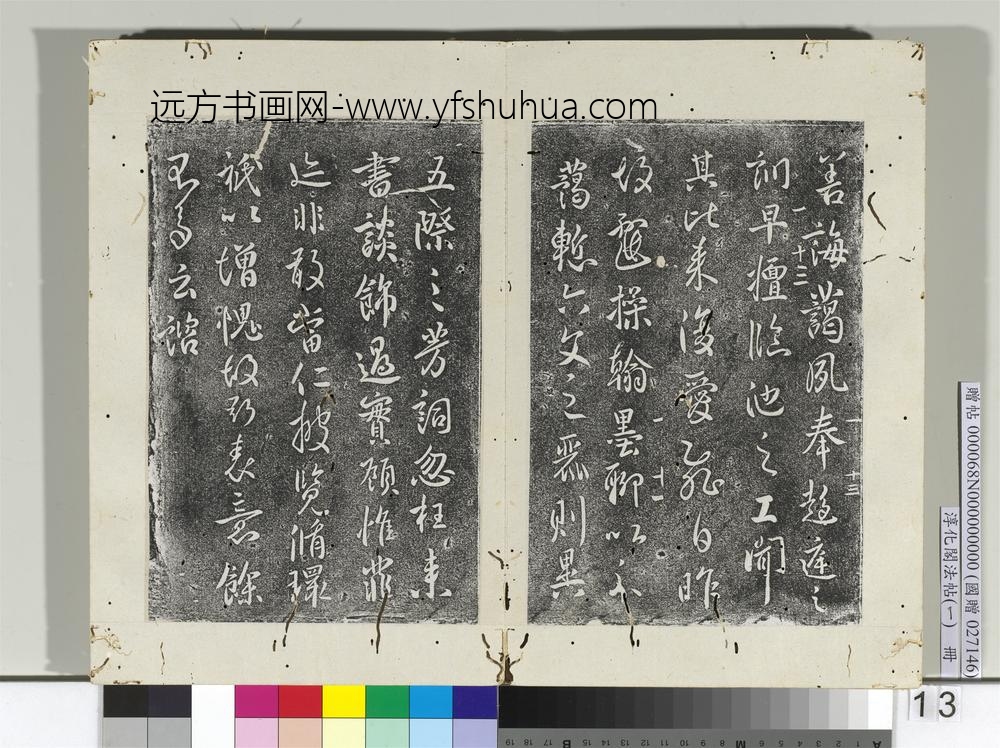 远方书画网-www.yfshuhua.com
善誨藹夙奉趨庭之
訓早擅臨池之工聞
其比来復愛飛白昨
故戲操翰墨聊以示
藹慙六文之則異
五際之芳詞忽枉来
書談飾過實顧惟菲
迹非敢當仁披覽循環
祇以增愧故斯表意餘
無所云諮
一十三
一 十三
一 十二
贈帖 000068N000000000 (國贈 027146)
淳化閣法帖(一) 冊
13